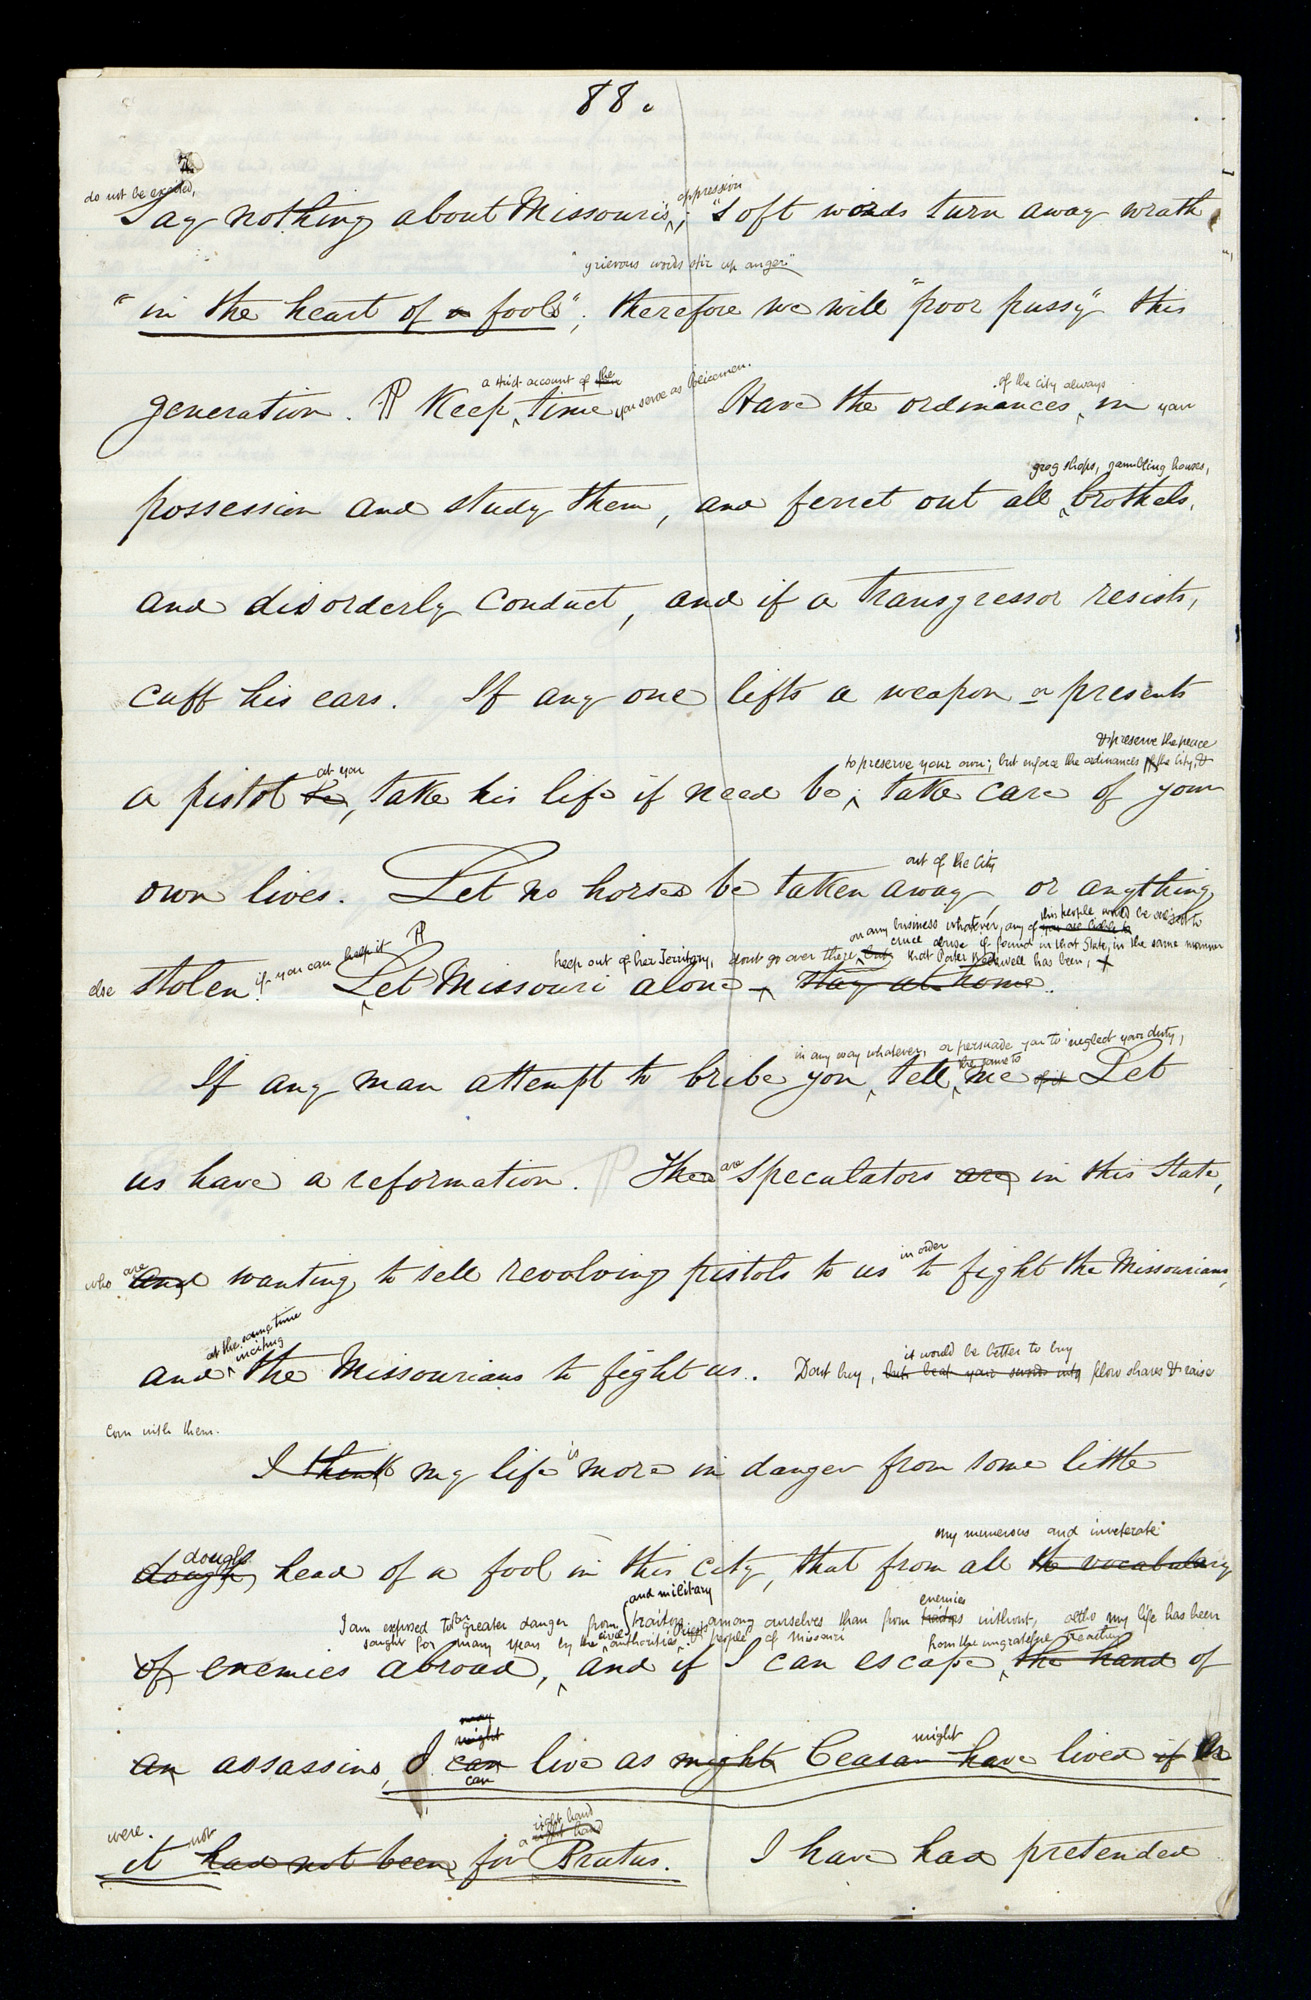 88.
do not be excited,
Say nothing about Missouri's oppression; "Soft words turn away wrath
"grievous words stir up anger"
"in the heart of a fools"; therefore we will "poor pussy" this
a strict account of the you serve as Policemen. of the City always
generation. ¶ Keep time Have the ordinances in your
grog shops, gambling houses,
possession and study them, and ferret out all brothels,
and disorderly conduct, and if a transgressor resists,
cuff his ears. If any one lifts a weapon or presents
& preserve the peace
at you to preserve your own; but enforce the ordinances of the City, &
a pistol &c, take his life if need be; take care of your
out of the City
own lives. Let no horses be taken away, or anything
this people would be subject to
on any business whatever, any of you are liable to
cruel abuse if found in that State, in the same manner
if you can help it ¶ keep out of her Territory, dont go over there but that Porter Rockwell has been,
else stolen. Let Missouri alone stay at home.
in any way whatever, or persuade you to neglect your duty,
the same to
If any man attempt to bribe you, tell me of it Let
us have a reformation. ¶ There are Speculators are in this State,
who are and wanting to sell revolving pistols to us in order to fight the Missourians,
at the same time
inciting it would be better to buy
and the Missourians to fight us. Dont buy, but beat your swords into plow shares & raise
corn with them.
I think my life is more in danger from some little
dough my numerous and inveterate
dough head of a fool in this city, that from all the vocabulary
and military enemies
I am exposed to far greater danger from traitors among ourselves than from traitors without, altho my life has been
sought for many years by the civil authorities, people of Missouri from the ungrateful treachery
of enemies abroad, and if I can escape the hand of
may
might might
an assassins, I can live as might Ceasar have lived if
can
right hand
were. not a right hand
it had not been for Brutus. I have had pretended